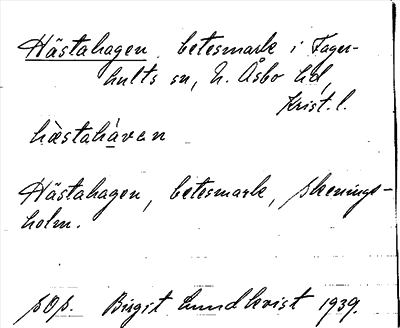 Hästahagen betesmark i Fager-
hults sn, N. Åsbo hd,
Krist. l.
hàstahàven
Hästahagen, betesmark, Skenings-
holm.
sOs. Birgit Lundkvist 1939.